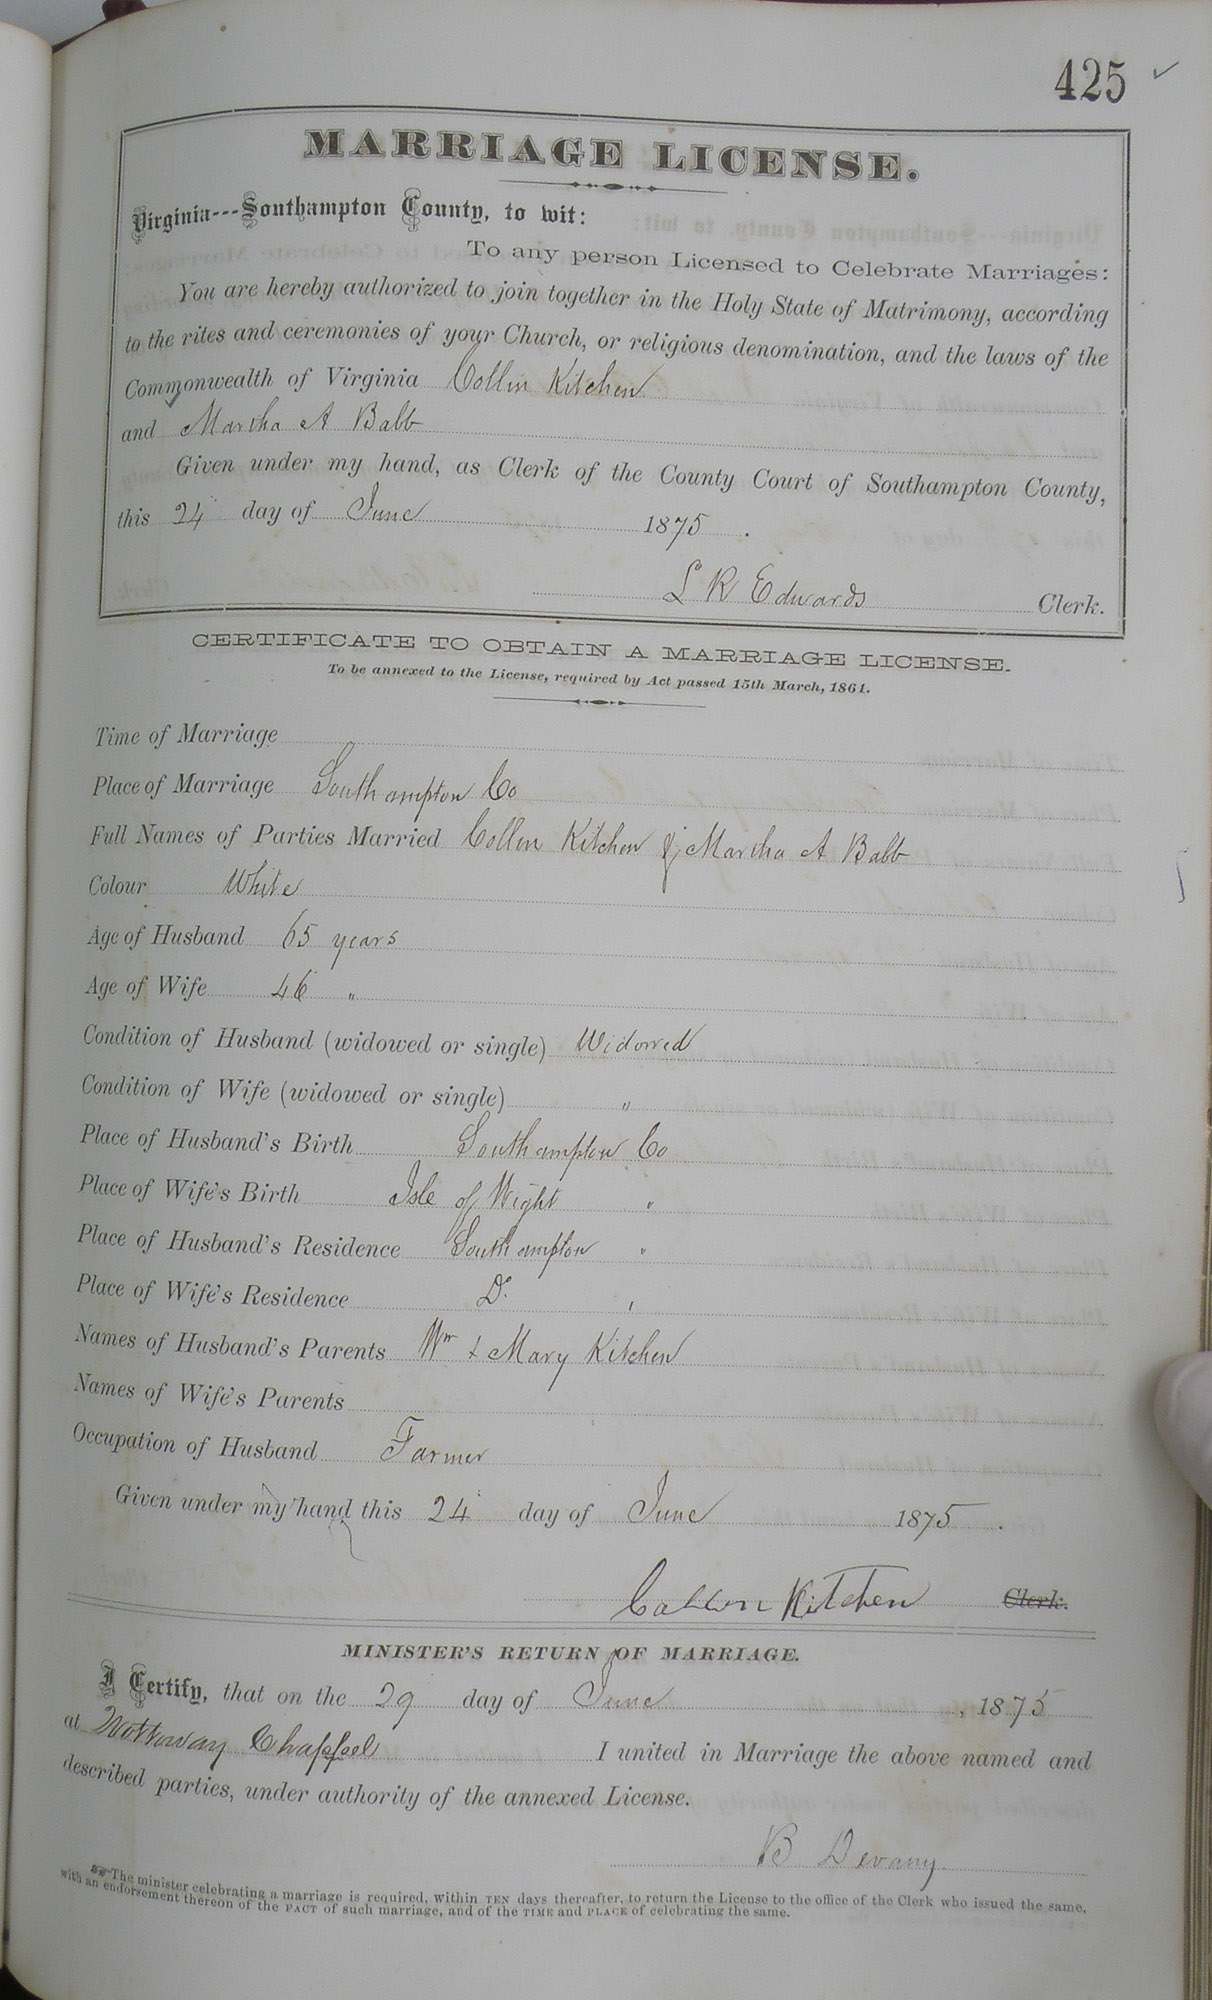 425 ✓
MARRIAGE LICENSE.
Virginia---Southampton County, to wit:
To any person Licensed to Celebrate Marriages:
You are hereby authorized to join together in the Holy State of Matrimony, according
to the rites and ceremonies of your Church, or religious denomination, and the laws of the
Commonwealth of Virginia Collin Kitchen
and Martha A Babb
Given under my hand, as Clerk of the County Court of Southampton County,
this 24 day of June 1875.
L R Edwards Clerk.
CERTIFICATE TO OBTAIN A MARRIAGE LICENSE.
To be annexed to the License, required by Act passed 15th March, 1861.
Time of Marriage
Place of Marriage Southampton Co
Full Names of Parties Married Collin Kitchen & Martha A Babb
Colour White
Age of Husband 65 years
Age of Wife 46 "
Condition of Husband (widowed or single) Widowed
Condition of Wife (widowed or single) "
Place of Husband's Birth Southampton Co
Place of Wife's Birth Isle of Wight "
Place of Husband's Residence Southampton "
Place of Wife's Residence Do "
Names of Husband's Parents Wm + Mary Kitchen
Names of Wife's Parents
Occupation of Husband Farmer
Given under my hand this 24 day of June 1875.
Kitchen Clerk.
MINISTER'S RETURN OF MARRIAGE.
I Certify, that on the 29 day of June, 1875
at Nottoway Chappel I united in Marriage the above named and
described parties, under authority of the annexed License.
B Devany
The minister celebrating a marriage is required, within TEN days thereafter, to return the License to the office of the Clerk who issued the same,
with an endorsement thereon of the FACT of such marriage, and of the TIME and PLACE of celebrating the same.